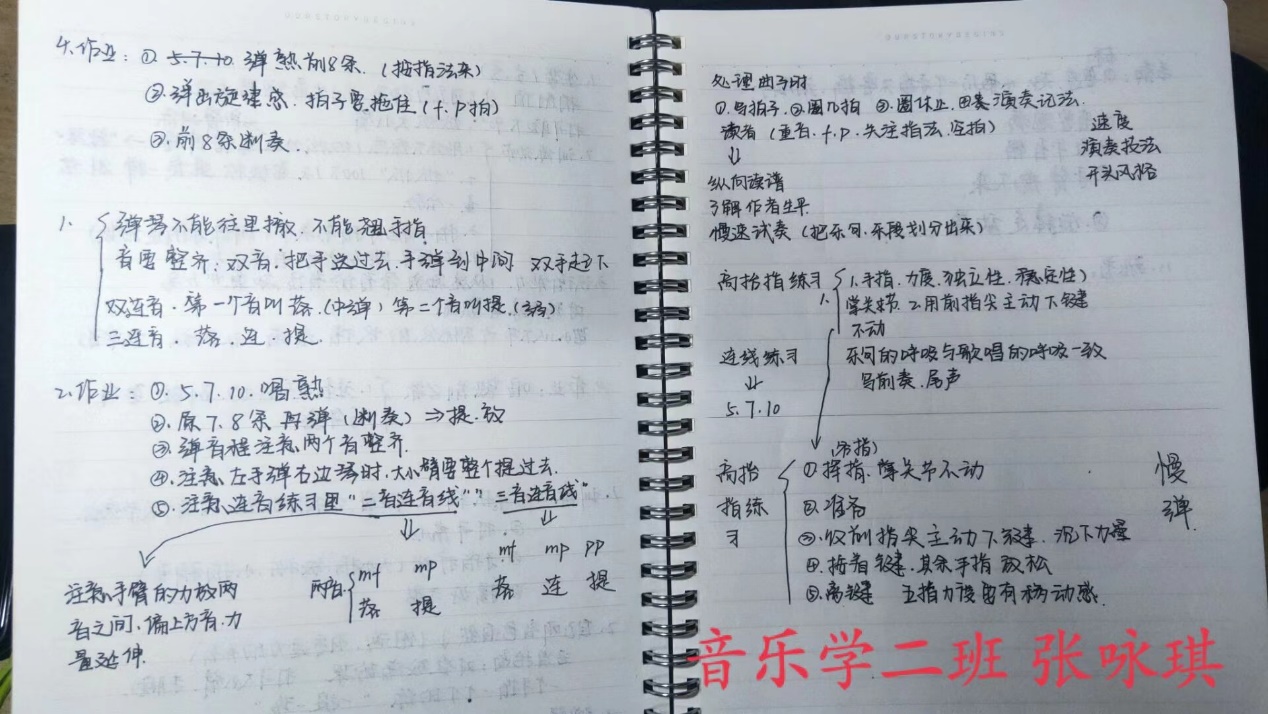 4.作业：① 5.7.10 弹熟前8条（按指法来）
②弹出旋律感．拍子要拖住（f.p拍）
③前8条断奏．
1. 弹琴不能往里撤．不能翘手指．
音要整齐：双音．把手送过去．手弹到中间 双手起下
双连音．第一个音叫落．（中弹）第二个音叫提（弱）
三连音．落．连．提．
2.作业 ①．5.7.10.唱熟
②．原7.8条再弹（断奏）⇒提．放
③弹音程注意两个音整齐．
④．注意左手弹右边琴时．大小臂要整个提过去．
⑤．注意连音练习里“二音连音线”“三音连音线”
注意手臂的力放两
音之间．偏上方音．力
量延伸．
两音 mf mp
落 提
mf mp pp
落 连 提
处理曲子时
①写拍子．②圈几拍 ③圈休止．④看演奏记法．
读者（重音．f.p.关注指法．空拍）
速度
演奏技法
开头风格
纵向读谱
了解作者生平
慢速试奏（把乐句．乐段划分出来）
高抬指练习 1.手指．力度．独立性．稳定性）
掌关节．2.用前指尖主动下键
不动
乐句的呼吸与歌唱的呼吸一致
写前奏．尾声
连线练习
5.7.10
高抬
指练
习
①挥指．掌关节不动
②准备
③仅前指尖主动下键．沉下力量
④．抬着键．其余手指放松
⑤离键 五指力度要有移动感．
慢
弹
音乐学二班 张咏琪